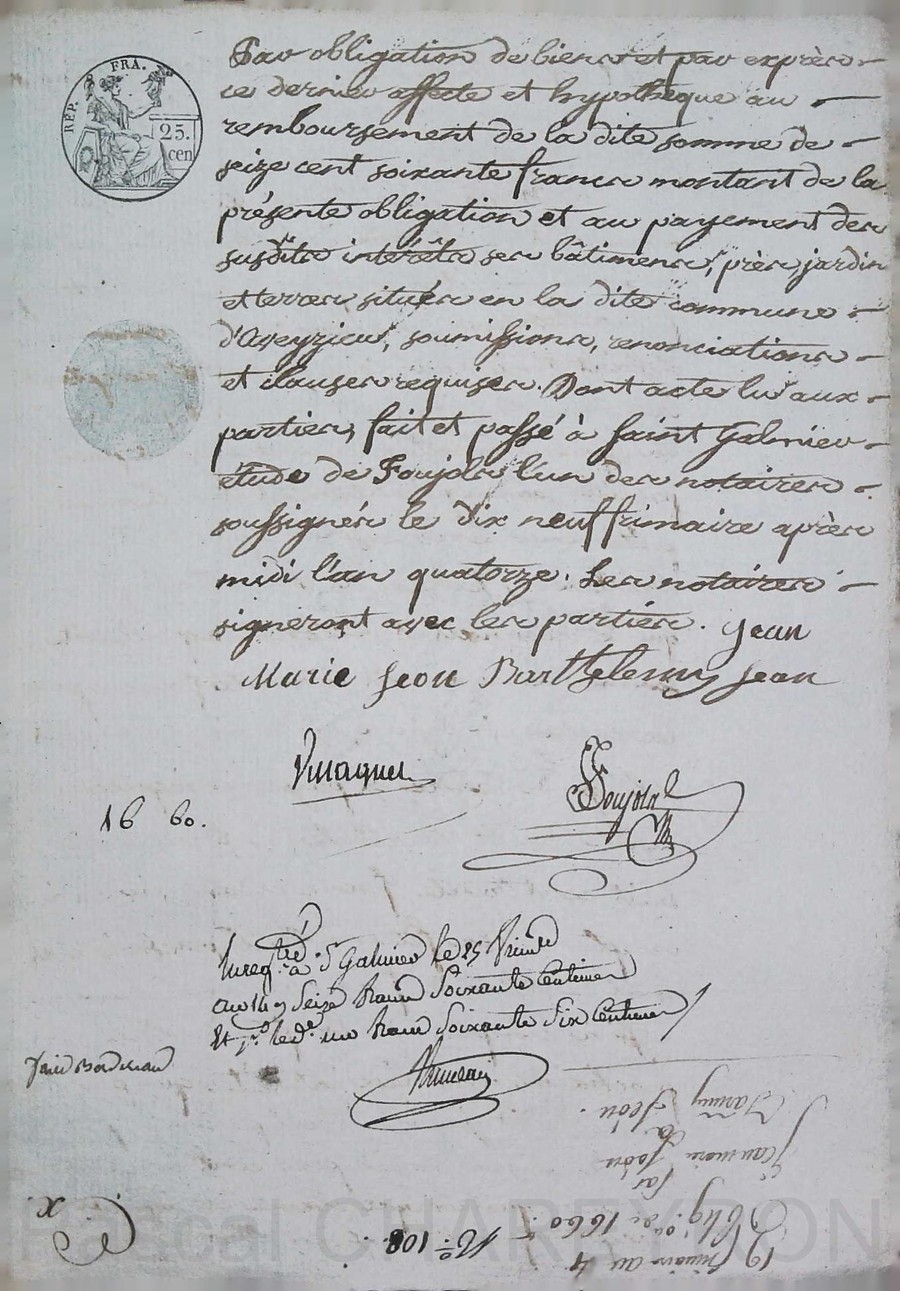 RÉP. FRA.
25.
cen
Par obligation de biens et par exprès
ce dernier affecte et hypothèque au
remboursement de la dite somme de
seize cent soixante francs montant de la
présente obligation et au payement des
susdits intérêts ses bâtimens, près, jardin
et terres situés en la dite commune
d'Aveyzieu, soumissions, renonciations
et clauses requises. Dont acte lu aux
parties, fait et passé à Saint Galmier
étude de Foujols l'un des notaires
soussignés le dix neuf frimaire après
midi l'an quatorze. Les notaires
signeront avec les parties. Jean
Marie Jeon Barthelemy Jean
Foujols
16 60.
Enregtré à St Galmier le 25 frimre
an 14 Seize francs Soixante Centimes
Et un franc Soixante Six Centimes
19 frimaire an 14
Oblig.on de 1660
par
Jeanmarie Jeon
à
Jeon
N.o 108.
x
Pascal CHAREYRON